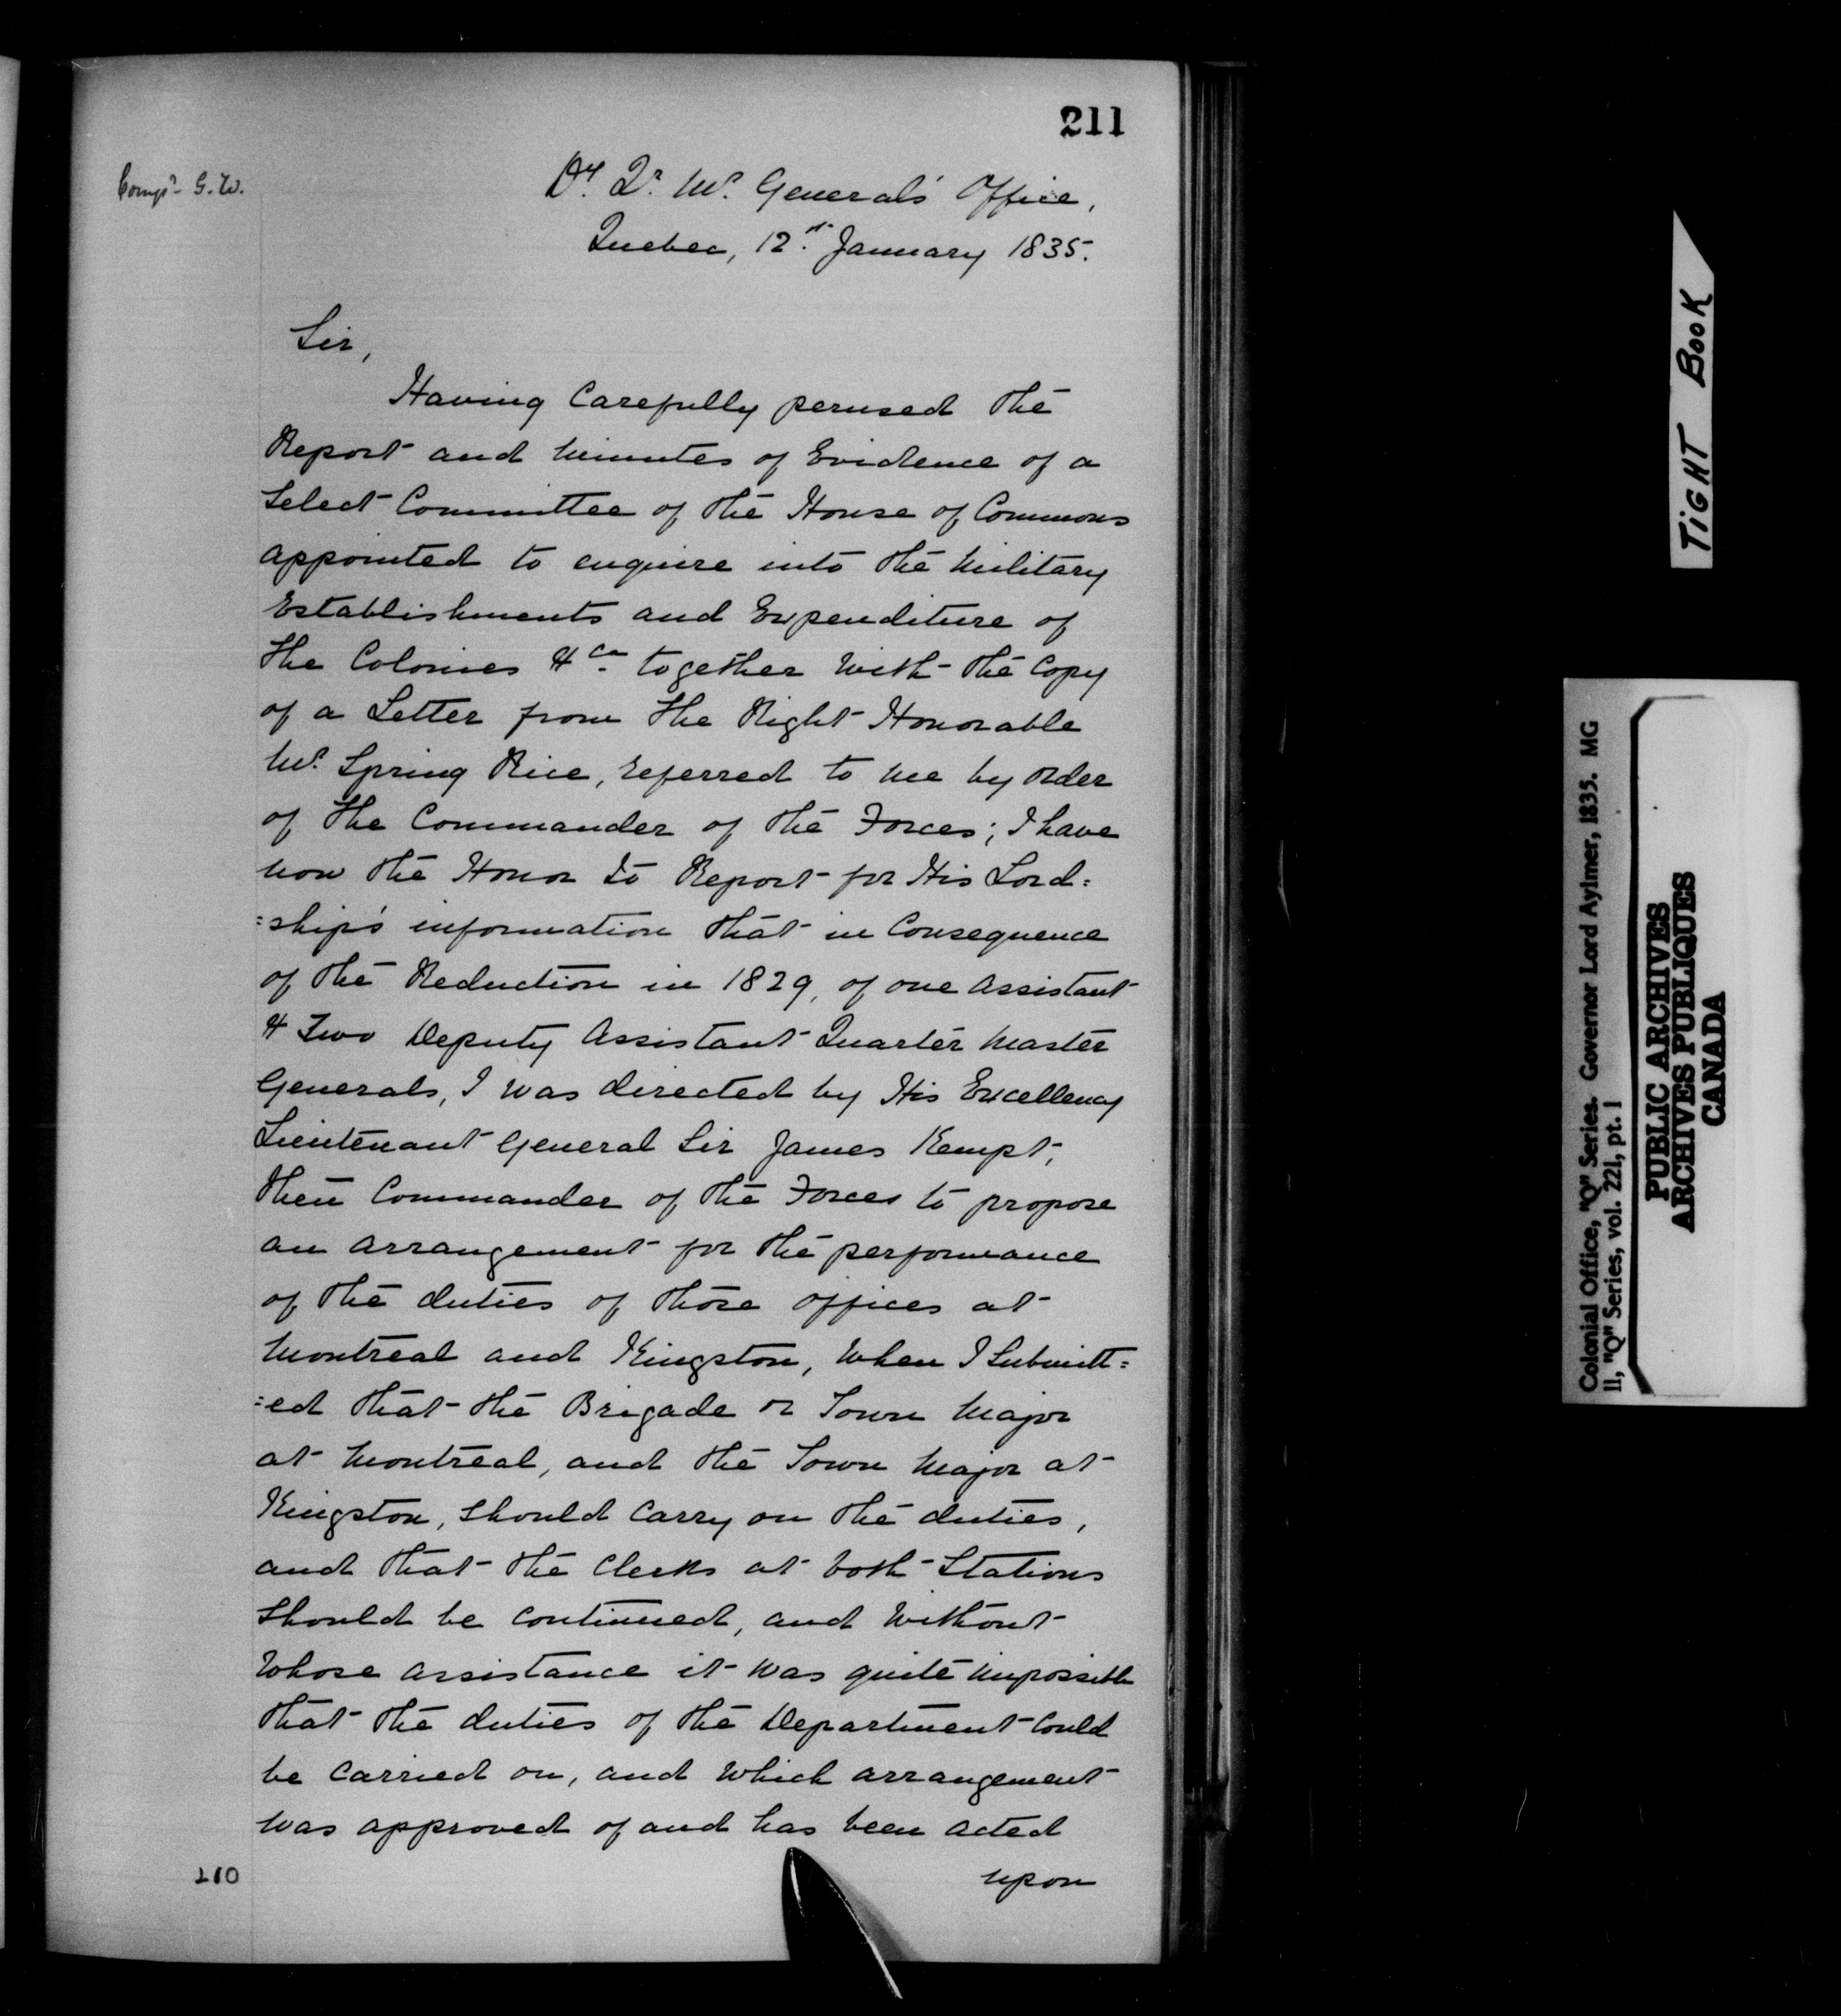 211
Comp^d G.W.
D^y Q^r M^r General's Office,
Quebec, 12^th January 1835.
Sir,
Having Carefully perused the
Report and Minutes of Evidence of a
Select Committee of the House of Commons
appointed to enquire into the Military
Establishments and Expenditure of
the Colonies &^ca together With the Copy
of a Letter from the Right Honorable
M^r Spring Rice, referred to me by order
of the Commander of the Forces; I have
now the Honor to Report for His Lord=
=ship's information that in Consequence
of the Reduction in 1829, of one Assistant
& Two Deputy Assistant Quarter Master
Generals, I was directed by His Excellency
Lieutenant General Sir James Kempt,
then Commander of the Forces to propose
an arrangement for the performance
of the duties of those offices at
Montreal and Kingston, When I Submitt=
=ed that the Brigade or Town Major
at Montreal, and the Town Major at
Kingston, should Carry on the duties,
and that the Clerks at both Stations
should be Continued, and Without
Whose assistance it was quite impossible
that the duties of the Department Could
be Carried on, and Which arrangement
was approved of and has been acted
upon
210
TIGHT BOOK
Colonial Office, "Q" Series. Governor Lord Aylmer, 1835. MG
11, "Q" Series, vol. 221, pt. 1
PUBLIC ARCHIVES
ARCHIVES PUBLIQUES
CANADA